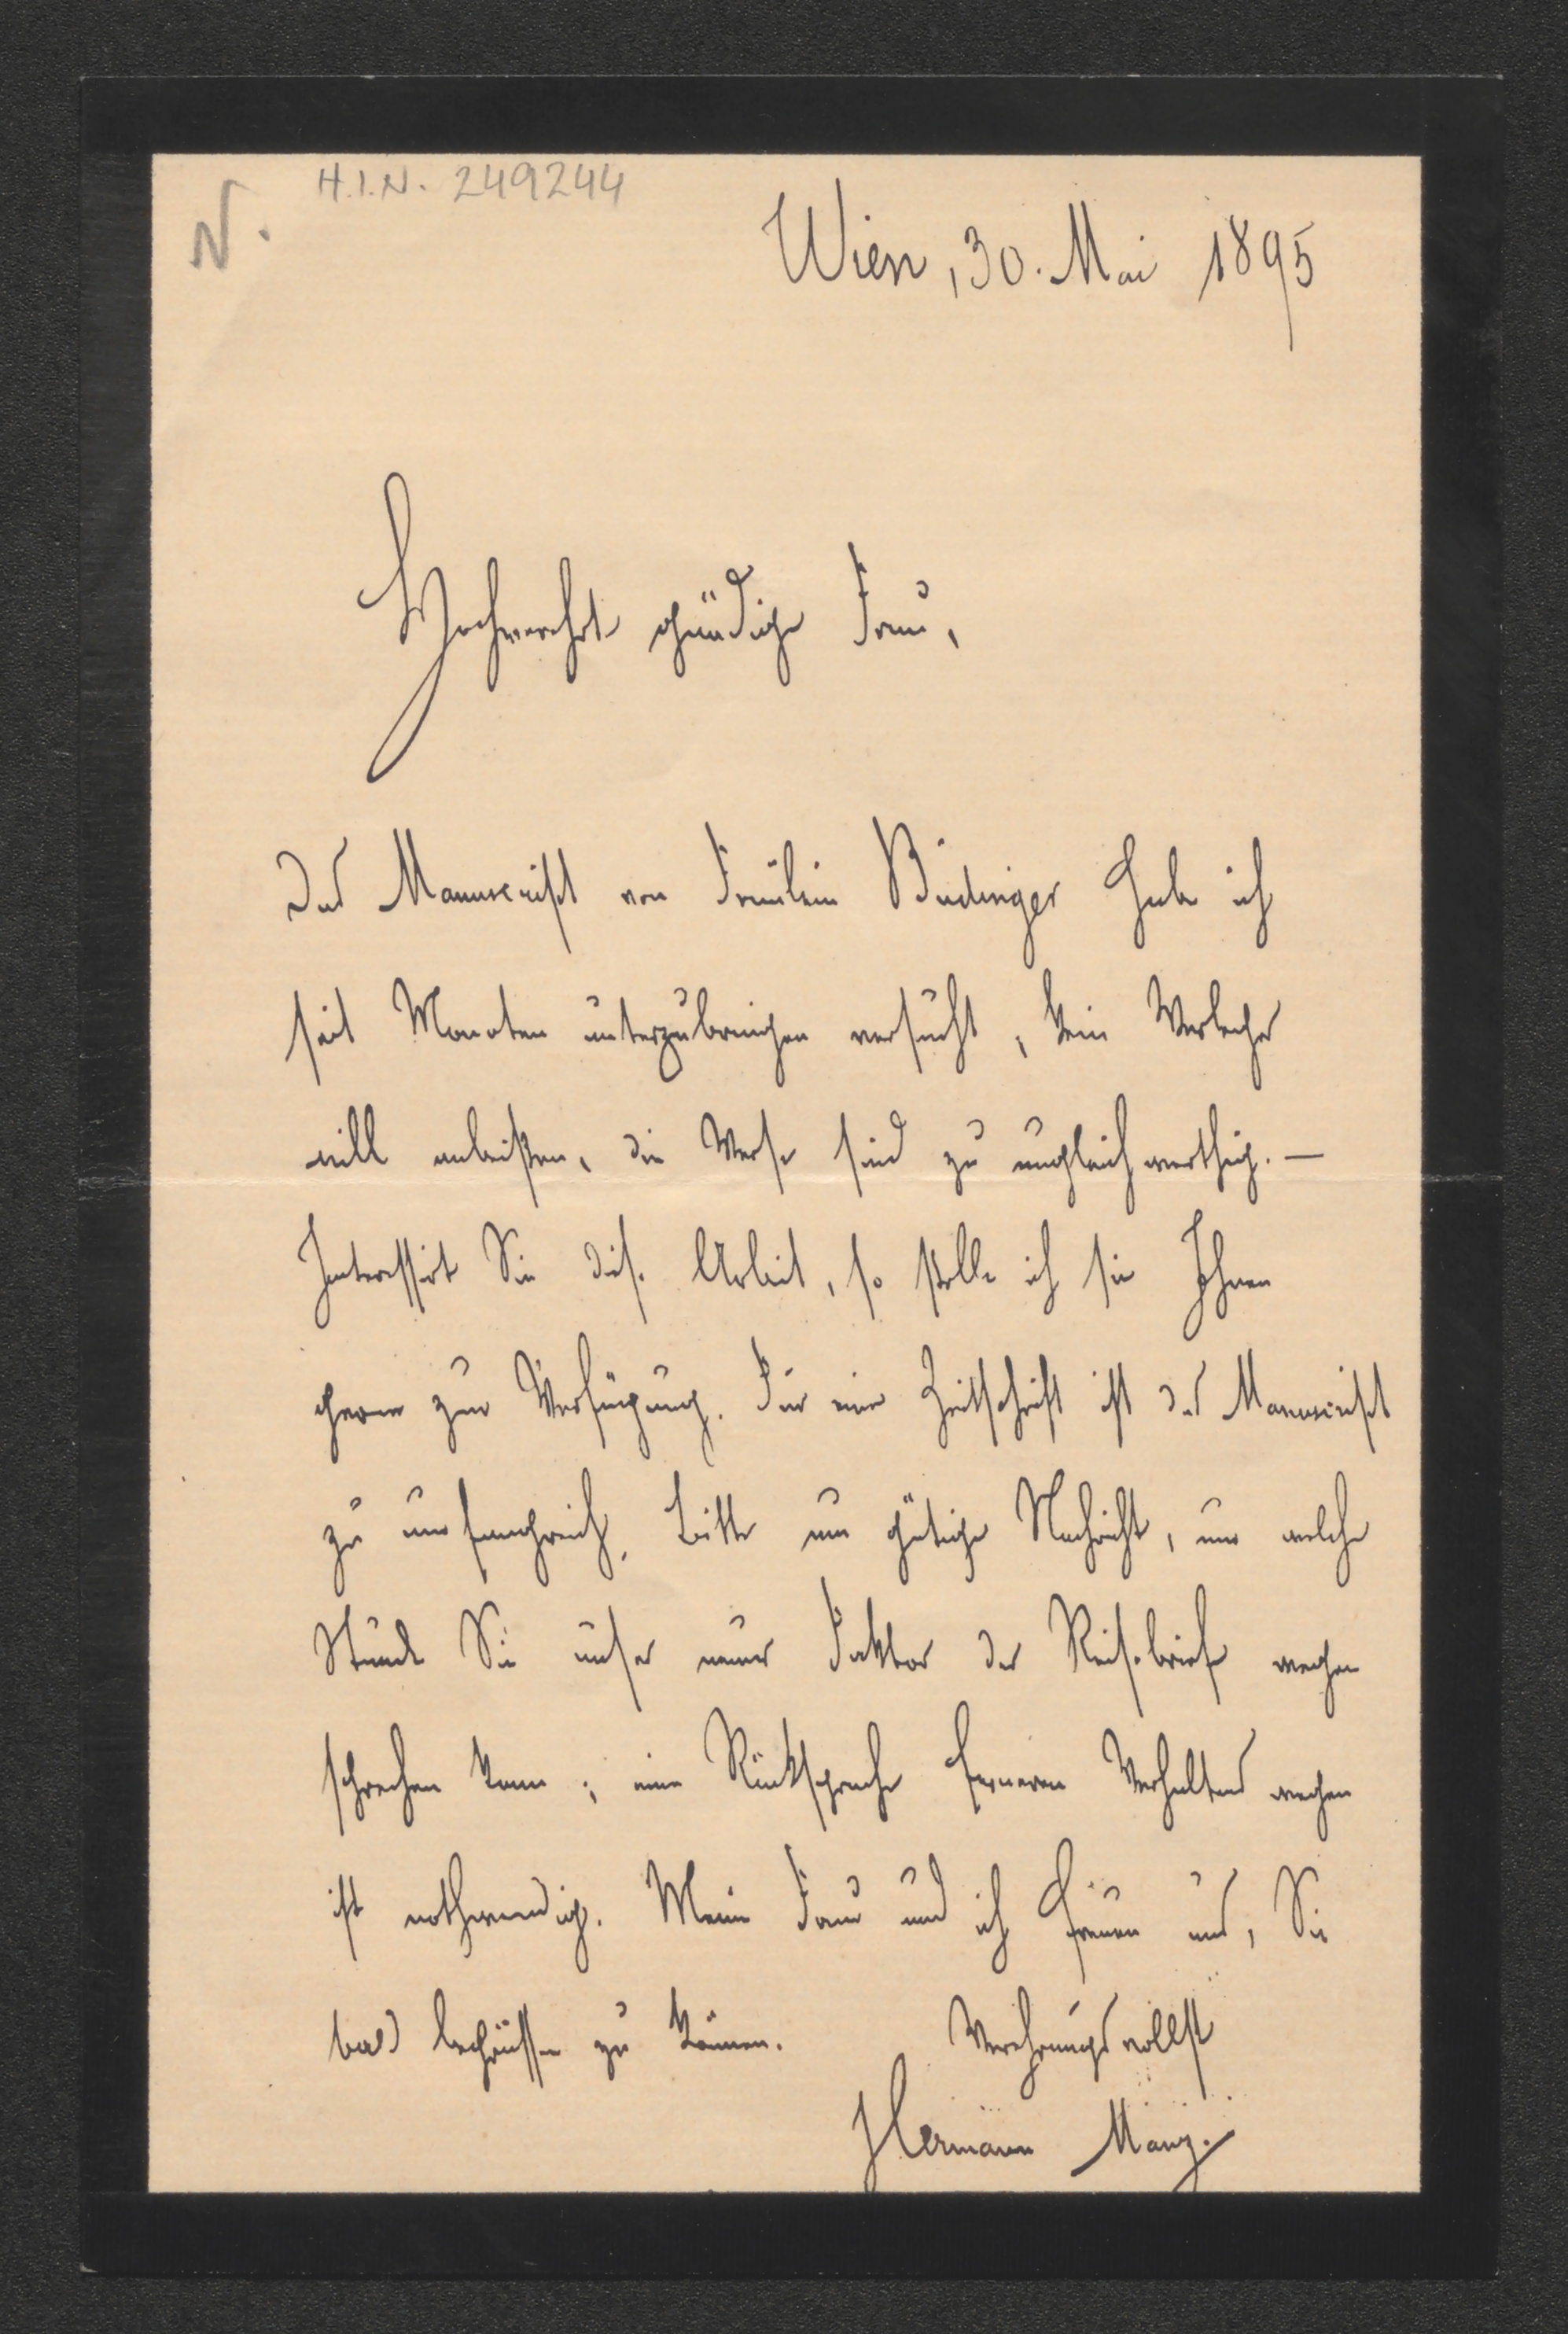 H.I.N. 249244
N.
Wien, 30. Mai 1895
Hochverehrte gnädige Frau,
Das Manuscript von Fräulein Büdinger habe ich
seit Monaten unterzubringen versucht, kein Verleger
will anbeißen, die Verse sind zu ungleichwerthig. —
Interessirt Sie diese Arbeit, so stelle ich sie Ihnen
gerne zur Verfügung. Für eine Zeitschrift ist das Manuscript
zu umfangreich. Bitte um gütige Nachricht, um welche
Stunde Sie unser neuer Faktor der Reisebriefe wegen
sprechen kann; eine Rücksprache ferneren Verhaltens wegen
ist nothwendig. Meine Frau und ich freuen uns, Sie
bald begrüssen zu können. Verehrungsvollst
Hermann Manz.